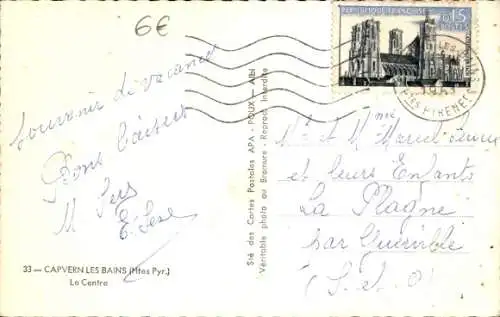 6€
Souvenir de vacances
Bons baisers
M Sers
E. Sese
33 — CAPVERN LES BAINS (Htes Pyr.)
Le Centre
Sté des Cartes Postales APA - POUX - ALBI
Véritable photo au Bromure - Reprod. Interdite
REPUBLIQUE FRANÇAISE
0,15
POSTES
Htes PYRENEES
Mr et Mme Marcel
et leurs Enfants
La Plagne
par Guerville
(S. et O)